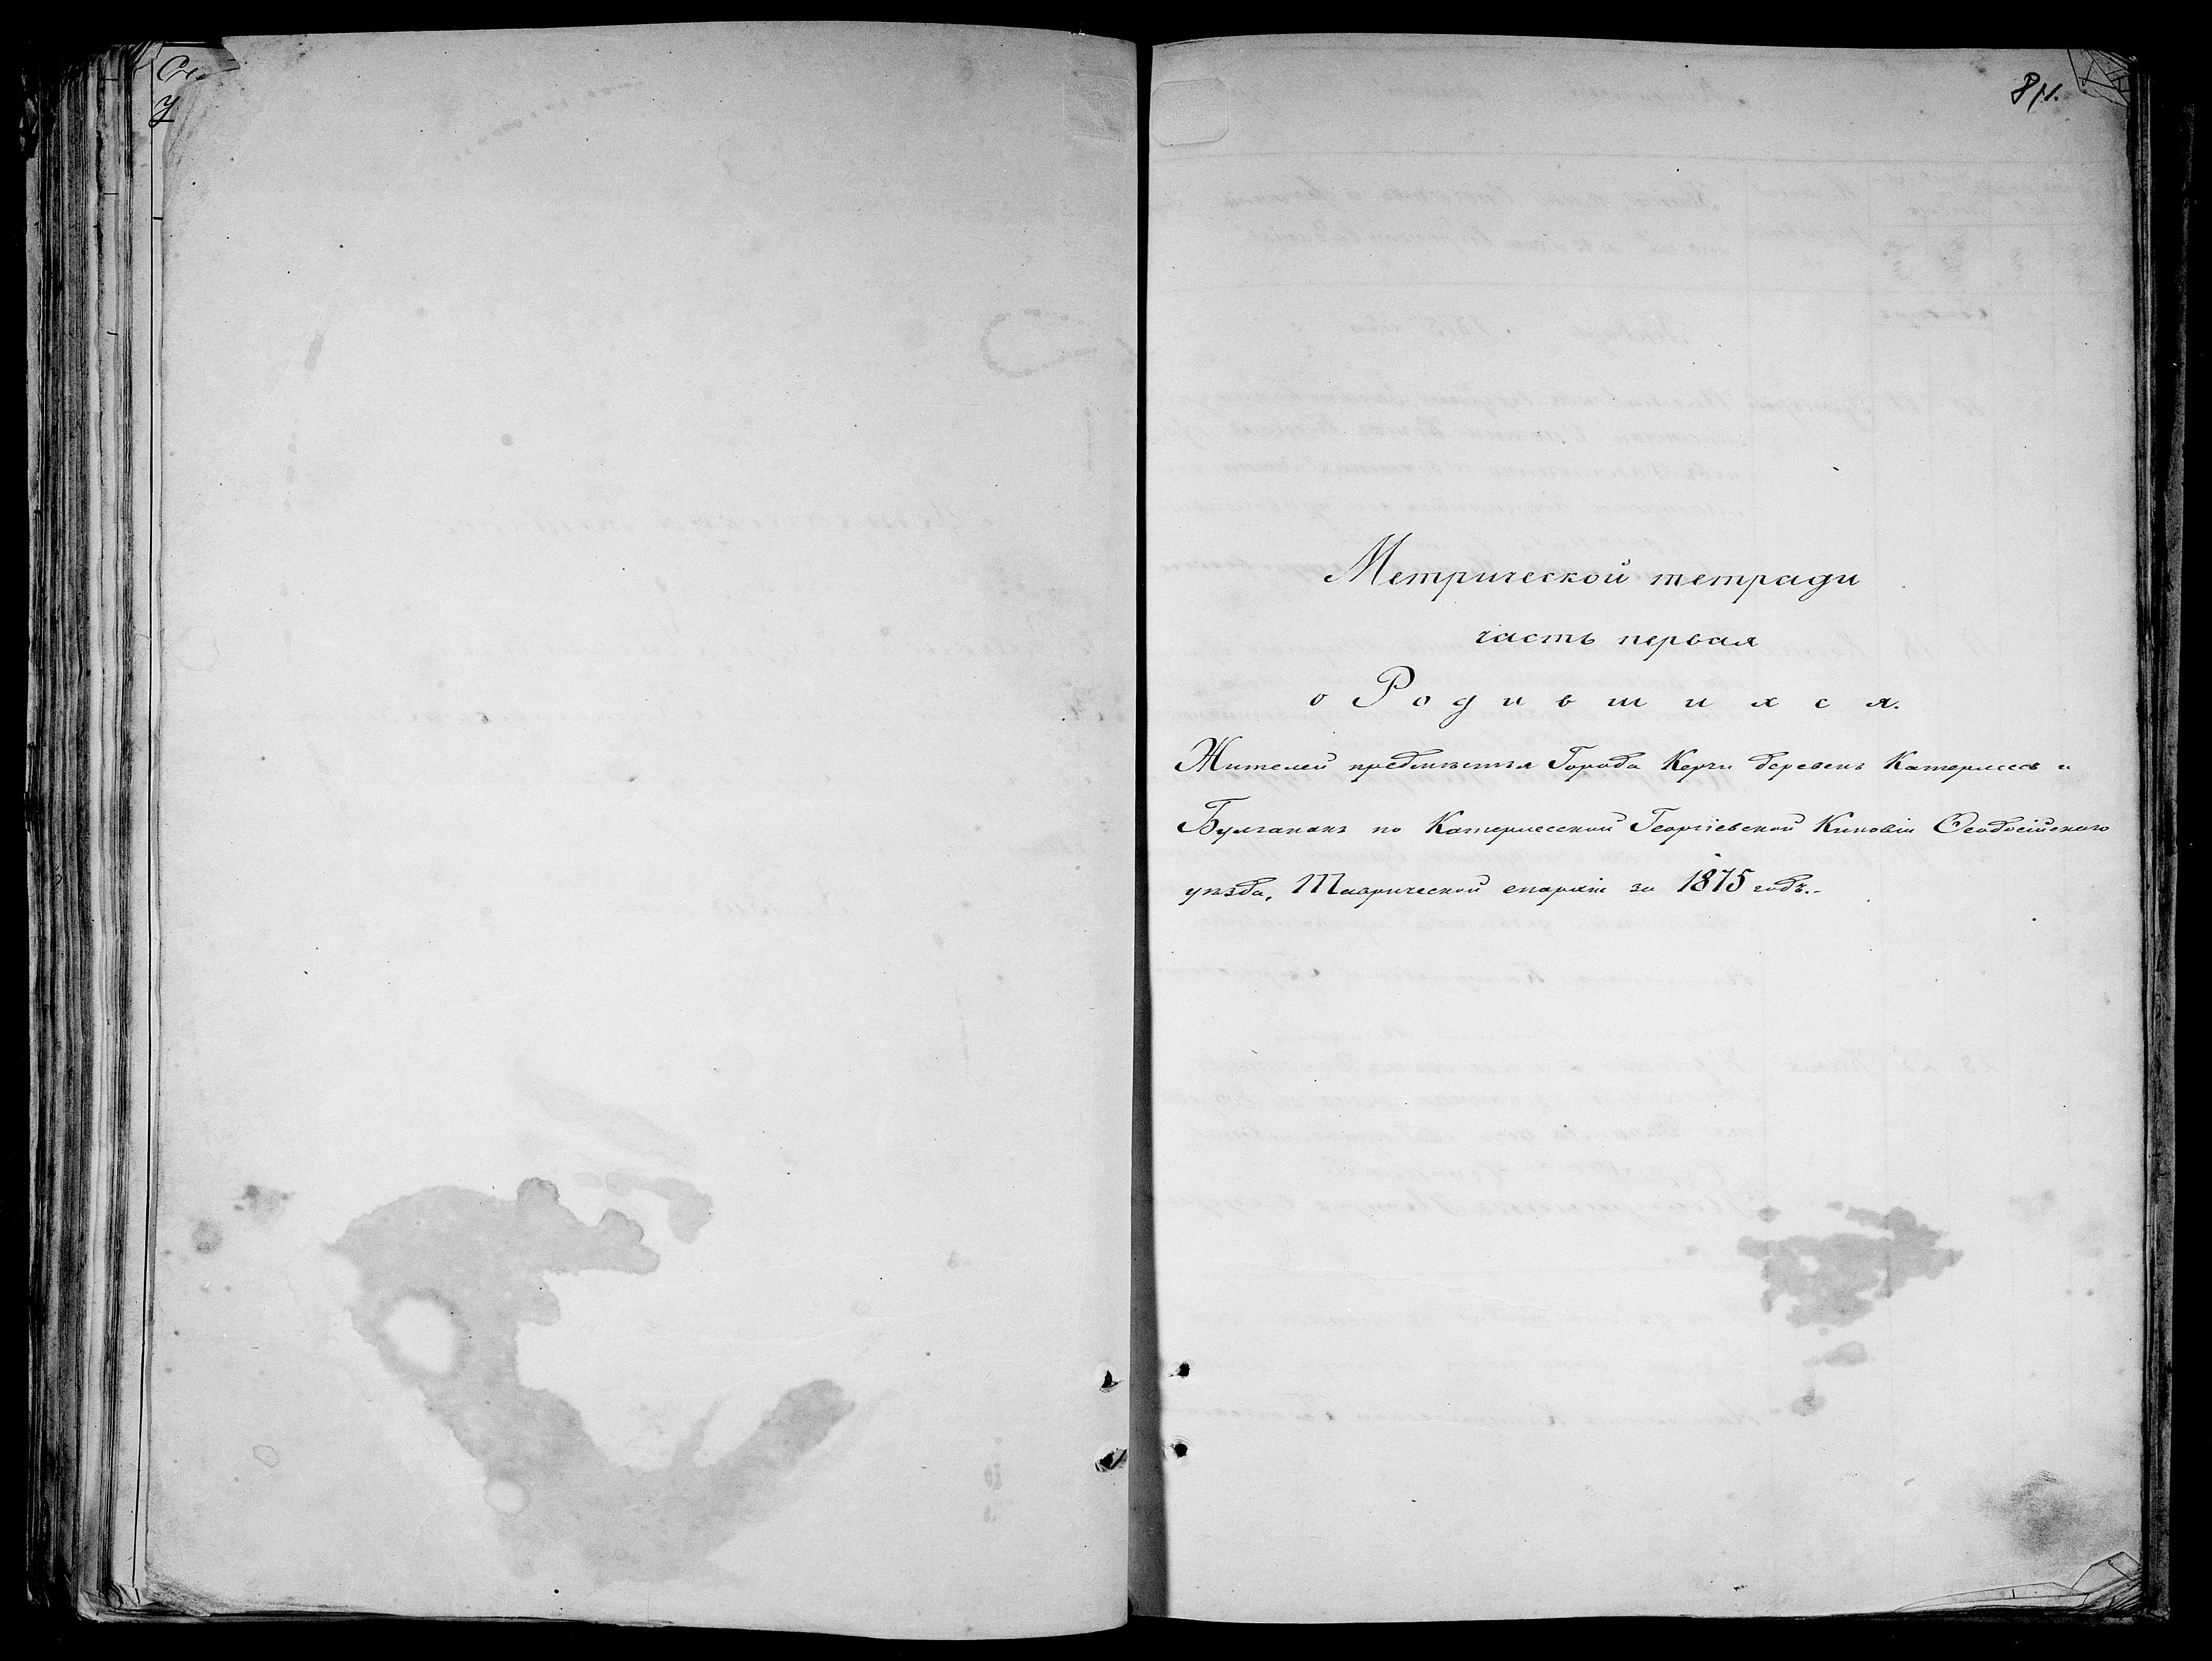 811.
Метрической тетради
часть первая
о Родившихся.
Жителей предмѣстья Города Керчи деревень Катерлесъ и
Булганакъ по Катерлесской Георгіевской Киновіи Ѳеодосійскаго
уѣзда, Таврической епархіи за 1875 годъ.